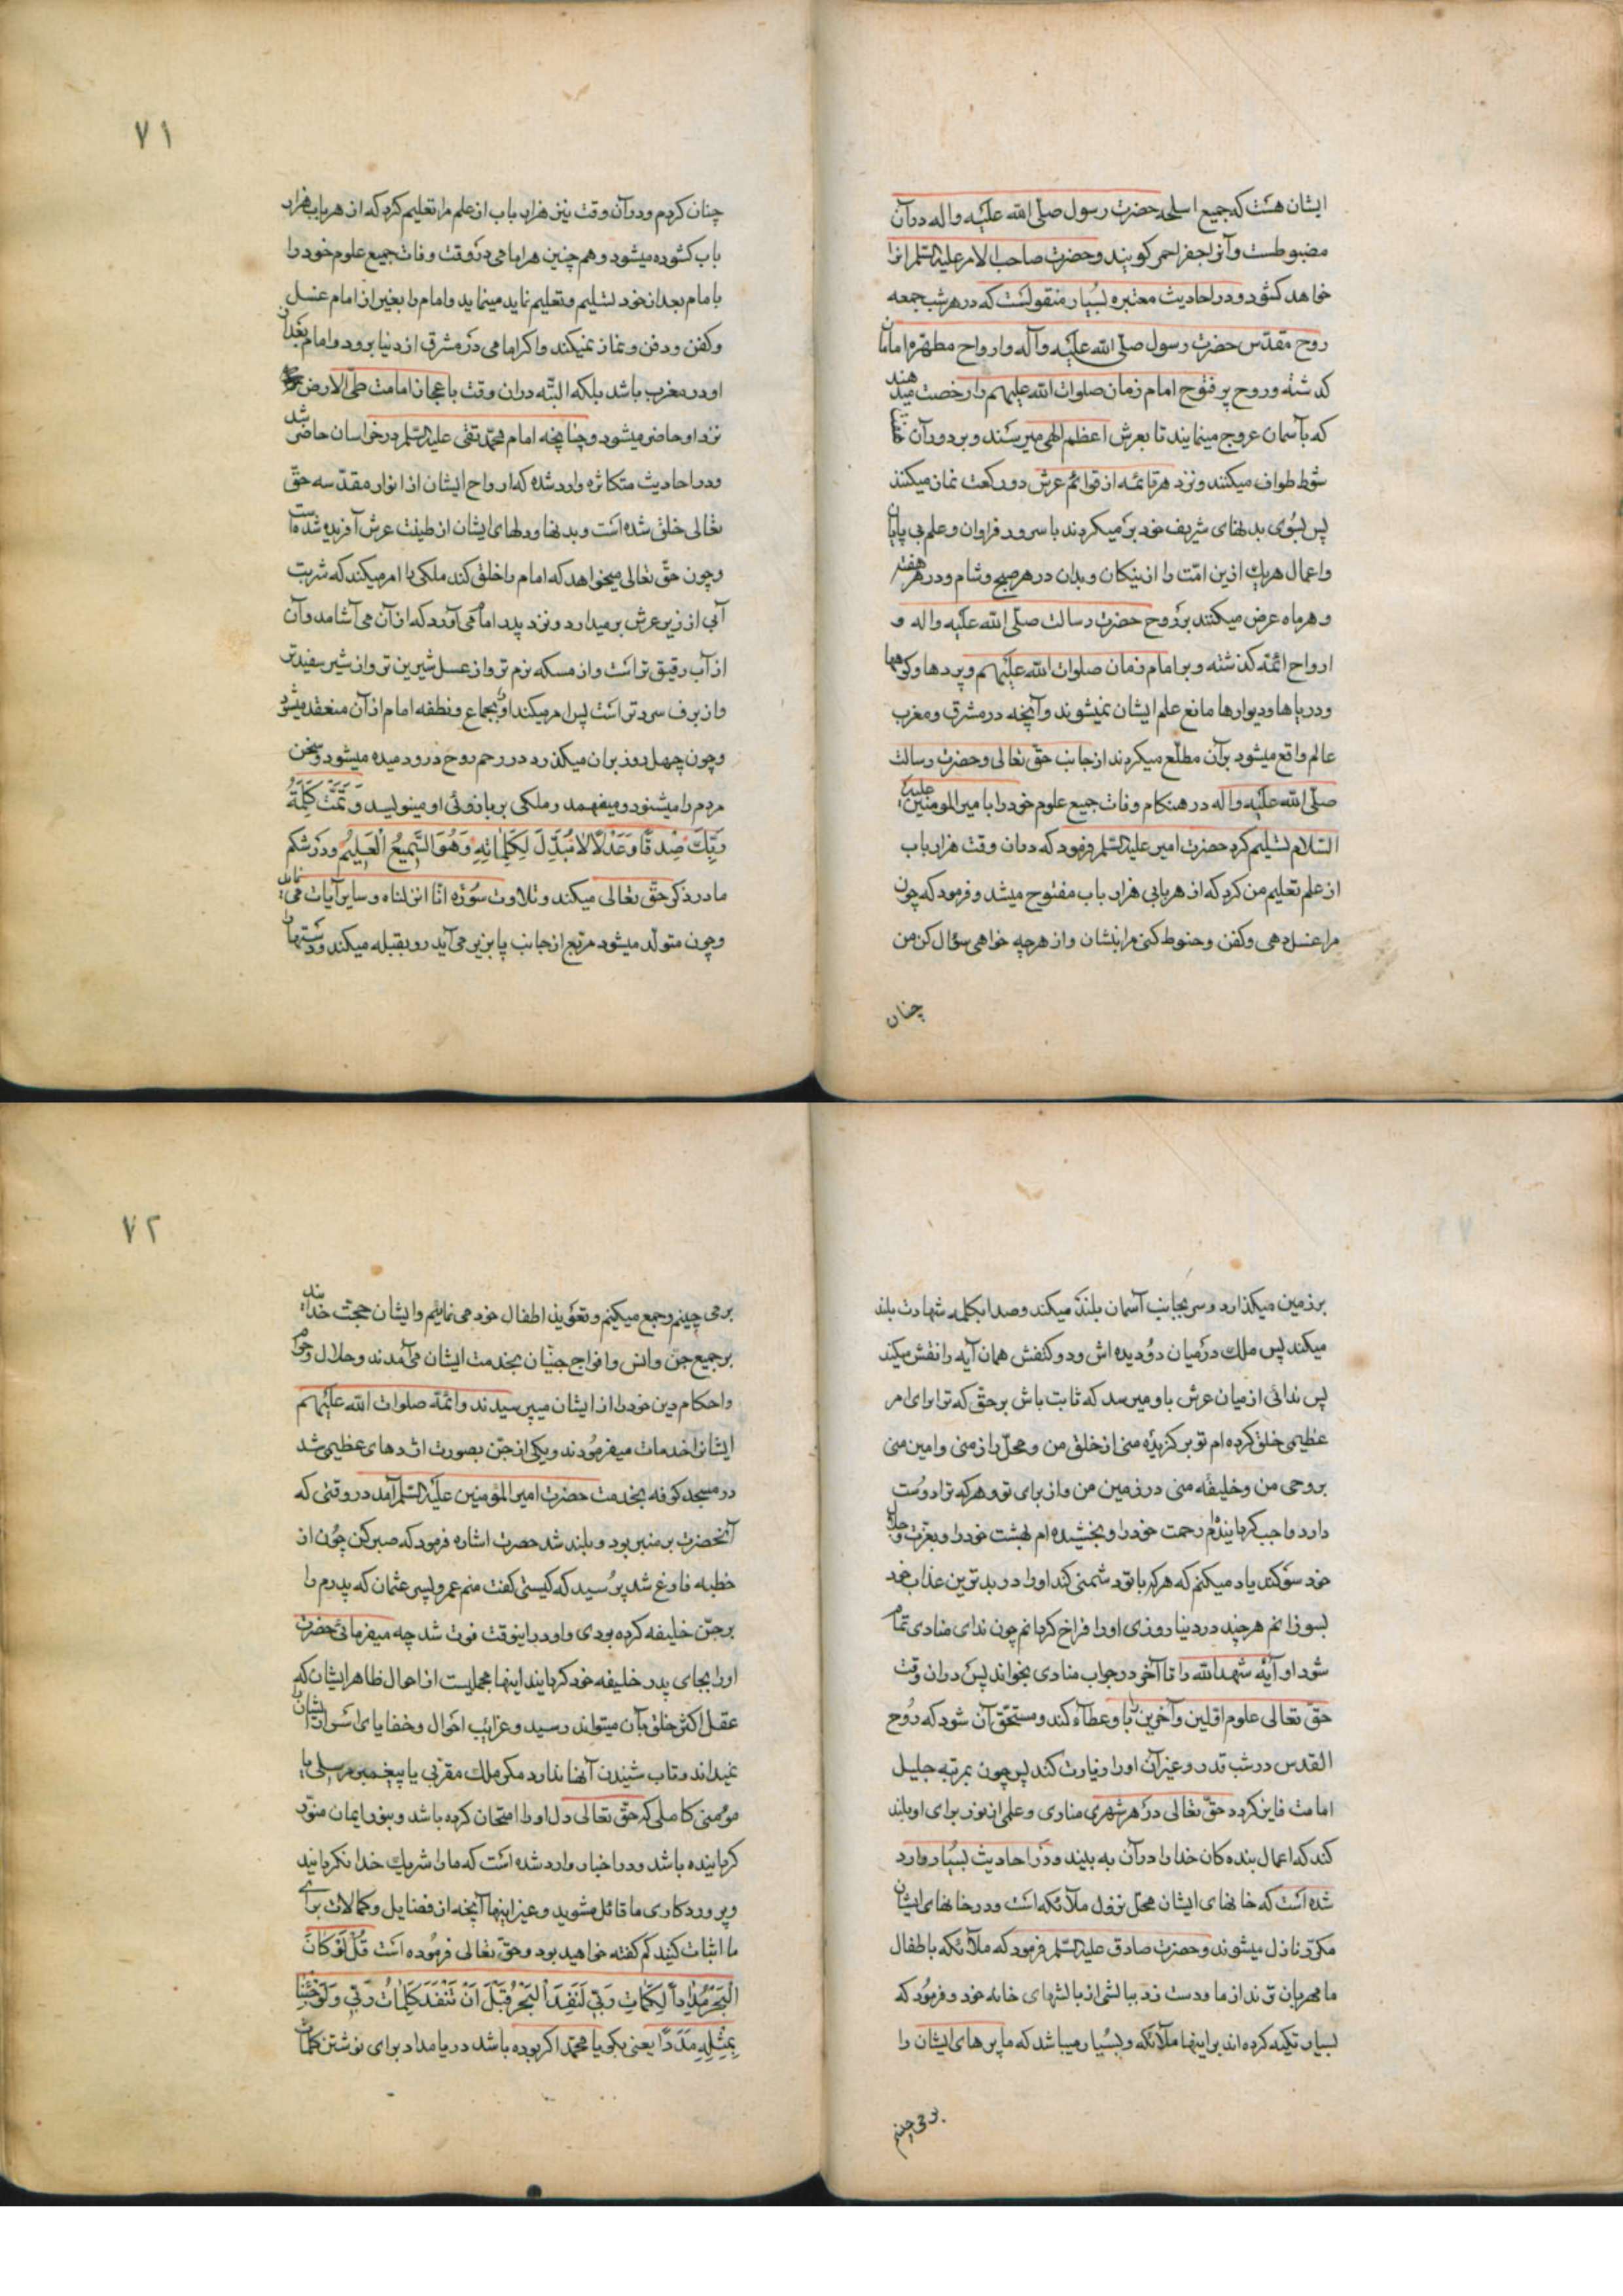 ایشان هست که جمیع اسلحه حضرت رسول صلّی الله علیه واله در آن
مضبوطست و آنرا جفر احمر کویند و حضرت صاحب الامر علیه السّلم انرا
خواهد کشود و در احادیث معتبره بسیار منقولست که در هر شب جمعه
روح مقدّس حضرت رسول صلّی الله علیه وآله و ارواح مطهّره امامان
کذشته و روح پر فتوح امام زمان صلوات الله علیهم را رخصت میدهند
که بآسمان عروج مینمایند تا بعرش اعظم الهی میرسند و بر دور آن
شوط طواف میکنند و نزد هر قائمه از قوائم عرش دو رکعت نماز میکنند
پس بسوی بدنهای شریف خود بر میکردند با سرور فراوان و علم بی پایان
و اعمال هریك ازین امّت را از نیکان و بدان در هر صبح و شام و در هر هفته
و هر ماه عرض میکنند بر روح حضرت رسالت صلّی الله علیه واله و
ارواح ائمّه کذشته و بر امام زمان صلوات الله علیهم و پردها و کوهها
و دریاها و دیوارها مانع علم ایشان نمیشوند و آنچه در مشرق و مغرب
عالم واقع میشود برآن مطلّع میکردند از جانب حقّ تعالی و حضرت رسالت
صلّی الله علیه وآله در هنکام وفات جمیع علوم خود را بامیر المومنین علیه
السّلام تسلیم کرد حضرت امیر علیه السّلم فرمود که در آن وقت هزار باب
از علم تعلیم من کرد که از هر بابی هزار باب مفتوح میشد و فرمود که چون
مرا غسل دهی و کفن و حنوط کنی مرا بنشان و از هر چه خواهی سؤال کن من
چنان
۷۱
چنان کردم و در آن وقت نیز هزار باب از علم مرا تعلیم کرد که از هر باب هزار
باب کشوده میشود و هم چنین هر امامی در وقت وفات جمیع علوم خود را
بامام بعد از خود تسلیم و تعلیم نماید مینماید و امام را بغیر از امام غسل
و کفن و دفن و نماز نمیکند و اکر امامی در مشرق از دنیا برود و امام بعد از
او در مغرب باشد بلکه البتّه در ان وقت باعجاز امامت طیّ الارض
نزد او حاضر میشود و چنانچه امام محمّد تقی علیه السّلم در خراسان حاضر شد
و در احادیث متکاثره وارد شده که ارواح ایشان از انوار مقدّسه حقّ
تعالی خلق شده است و بدنها و دلهای ایشان از طینت عرش آفریده شده است
و چون حقّ تعالی میخواهد که امام را خلق کند ملکی را امر میکند که شربت
آبی از زیر عرش بر میدارد و نزد پدر امام می آورد که از آن می آشامد و آن
از آب رقیق تر است و از مسکه نرم تر و از عسل شیرین تر و از شیر سفیدتر
و از برف سردتر است پس امر میکند او را بجماع و نطفه امام از آن منعقد میشود
و چون چهل روز بران میکذرد در رحم روح در و دمیده میشود و سخن
مردم را میشنود و میفهمد و ملکی بر بازوئی او مینویسد وَ تَمَّتْ کَلِمَةُ
رَبِّكَ صِدْقًا وَعَدْلًا لَا مُبَدِّلَ لِکَلِمَاتِهِ وَهُوَ السَّمِیعُ الْعَلِیمُ و در شکم
مادر ذکر حقّ تعالی میکند و تلاوت سوره انّا انزلناه و سایر آیات می نماید
و چون متولّد میشود مربّع از جانب پا بزیر می آید رو بقبله میکند و دستها را
بر زمین میکذارد و سر بجانب آسمان بلند میکند و صدا بکلمه شهادت بلند
میکند پس ملك در میان دو دیده اش و دو کتفش همان آیه را نقش میکند
پس ندائی از میان عرش باو میرسد که ثابت باش بر حقّ که ترا برای امر
عظیمی خلق کرده ام تو برکزیده منی از خلق من و محلّ راز منی و امین منی
بر وحی من و خلیفه منی در زمین من و از برای تو و هر که ترا دوست
دارد واجب کردانیده‌ام رحمت خود را و بخشیده ام بهشت خود را و بعزّت و جلال
خود سوکند یاد میکنم که هر که با تو دشمنی کند او را در بدترین عذاب خود
بسوزانم هر چند در دنیا روزی او را فراخ کردانم چون ندای منادی تمام
شود او آیه شهد الله را تا آخر در جواب منادی بخواند پس در ان وقت
حقّ تعالی علوم اوّلین و آخرین را باو عطا کند و مستحقّ آن شود که روح
القدس در شب قدر و غیر آن او را زیارت کند پس چون بمرتبه جلیل
امامت فایز کردد حقّ تعالی در هر شهری مناری و علمی از نور برای او بلند
کند که اعمال بنده کان خدا را در آن به بیند و در احادیث بسیار وارد
شده است که خانهای ایشان محلّ نزول ملائکه است و در خانهای ایشان
مکرّر نازل میشوند و حضرت صادق علیه السّلم فرمود که ملائکه باطفال
ما مهربان ترند از ما و دست زد ببالشی از بالشهای خانه خود و فرمود که
بسیار تکیه کرده اند بر اینها ملائکه و بسیار میباشد که ما پرهای ایشان را
بر می چینم
۷۲
بر می چینم و جمع میکنم و تعویذ اطفال خود می نمایم و ایشان حجّت خدایند
بر جمیع جنّ و انس و افواج جنّیان بخدمت ایشان می آمدند و حلال و حرام
و احکام دین خود را از ایشان میپرسیدند و ائمّه صلوات الله علیهم
ایشانرا خدمات میفرمودند و یکی از جنّ بصورت اژدهای عظیمی شد
در مسجد کوفه بخدمت حضرت امیر المؤمنین علیه السّلم آمد در وقتی که
آنحضرت بر منبر بود و بلند شد حضرت اشاره فرمود که صبر کن چون از
خطبه فارغ شد پرسید که کیستی کفت منم عمرو پسر عثمان که پدرم را
بر جنّ خلیفه کرده بودی و او در اینوقت فوت شد چه میفرمائی حضرت
او را بجای پدر خلیفه خود کردانید اینها مجملیست از احوال ظاهر ایشان که
عقل اکثر خلق بآن میتواند رسید و غرایب احوال و خفایای اسرار ایشان را
نمیداند و تاب شنیدن آنها ندارد مکر ملك مقرّبی یا پیغمبر مرسلی یا
مؤمنی کاملی که حقّ تعالی دل او را امتحان کرده باشد و بنور ایمان منوّر
کردانیده باشد و در اخبار وارد شده است که ما را شریك خدا نکردانید
و پروردکاری ما قائل مشوید و غیر اینها آنچه از فضایل و کمالات برای
ما اثبات کنید کم کفته خواهید بود و حقّ تعالی فرموده است قُلْ لَوْ کَانَ
الْبَحْرُ مِدَاداً لِکَلِمَاتِ رَبِّی لَنَفِدَ الْبَحْرُ قَبْلَ اَنْ تَنْفَدَ کَلِمَاتُ رَبِّی وَلَوْ جِئْنَا
بِمِثْلِهِ مَدَدًا یعنی بکو یا محمّد اکر بوده باشد دریا مداد برای نوشتن کلمات